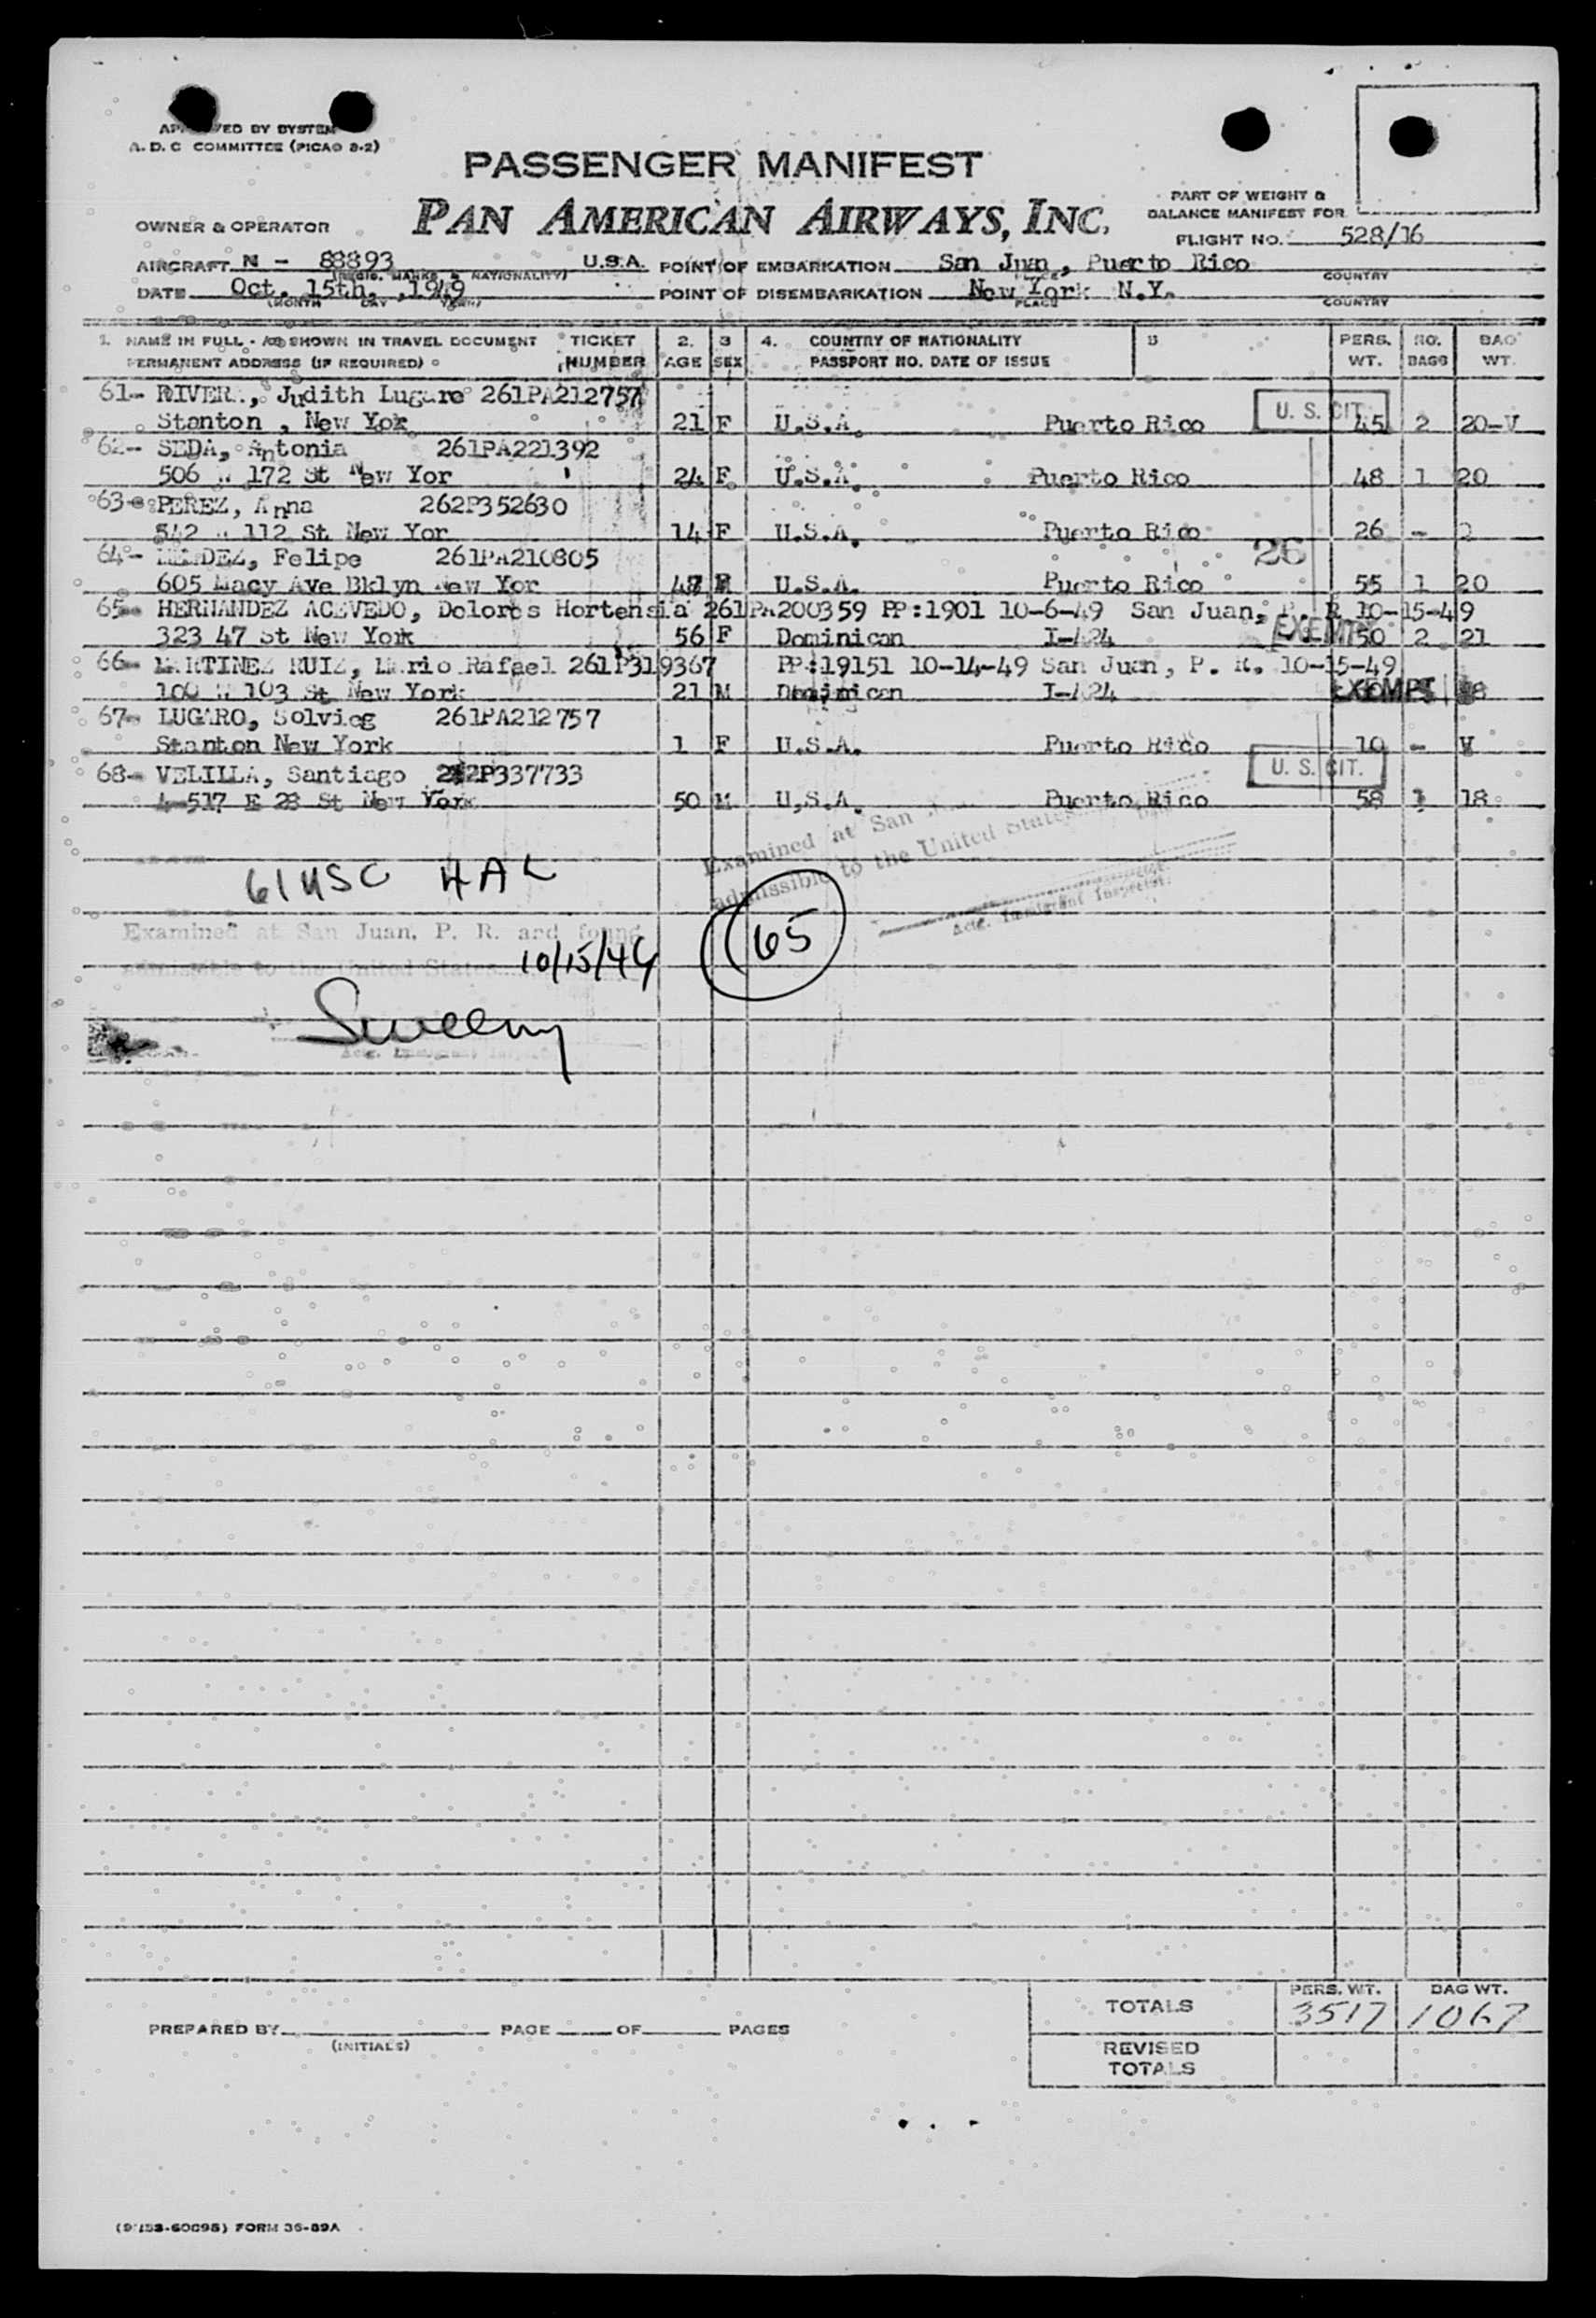 APPROVED BY SYSTEM
A. D. C COMMITTEE (PICAO 8-2)
PASSENGER MANIFEST
PAN AMERICAN AIRWAYS, INC.
PART OF WEIGHT &
BALANCE MANIFEST FOR
OWNER & OPERATOR
FLIGHT NO. 528/16
AIRCRAFT N - 88893 U.S.A. POINT OF EMBARKATION San Juan, Puerto Rico
(REGIS. MARKS & NATIONALITY) PLACE COUNTRY
DATE Oct. 15th. ,1949 POINT OF DISEMBARKATION New York N.Y.
(MONTH DAY YEAR) PLACE COUNTRY
1. NAME IN FULL - AS SHOWN IN TRAVEL DOCUMENT TICKET 2. 3 4. COUNTRY OF NATIONALITY 5 PERS. NO. BAG
PERMANENT ADDRESS (IF REQUIRED) NUMBER AGE SEX PASSPORT NO. DATE OF ISSUE WT. BAGS WT.
61- RIVERA, Judith Lugaro 261PA212757
Stanton , New Yok 21 F U.S.A. Puerto Rico U. S. CIT. 45 2 20-V
62- SEDA, Antonia 261PA221392
506 W 172 St New Yor 24 F U.S.A. Puerto Rico 48 1 20
63- PEREZ, Anna 262P352630
542 W 112 St New Yor 14 F U.S.A. Puerto Rico 26 -
64- MENDEZ, Felipe 261PA210805 26
605 Macy Ave Bklyn New Yor U.S.A. Puerto Rico 55 1 20
65- HERNANDEZ ACEVEDO, Dolores Hortensia 261PA200359 PP:1901 10-6-49 San Juan, P. R 10-15-49
323 47 St New York 56 F Dominican I-424 EXEMPT 50 2 21
66- MARTINEZ RUIZ, Mario Rafael 261P319367 PP:19151 10-14-49 San Juan, P. R. 10-15-49
100 W 103 St New York 21 M Dominican I-424 EXEMPT
67- LUGARO, Solvieg 261PA212757
Stanton New York 1 F U.S.A. Puerto Rico 10 - V
68- VELILLA, Santiago 262P337733 U. S. CIT.
517 E 28 St New York 50 M U.S.A. Puerto Rico 58 1 18
Examined at San
admissible to the United States
Actg. Immigrant Inspector.
61 USC HAL
65
Examined at San Juan, P. R. and found
admissible to the United States 10/15/49
Sweeny
Actg. Immigrant Inspector
TOTALS PERS. WT. 3517 BAG WT. 1067
PREPARED BY PAGE OF PAGES
(INITIALS)
REVISED
TOTALS
FORM 36-89A